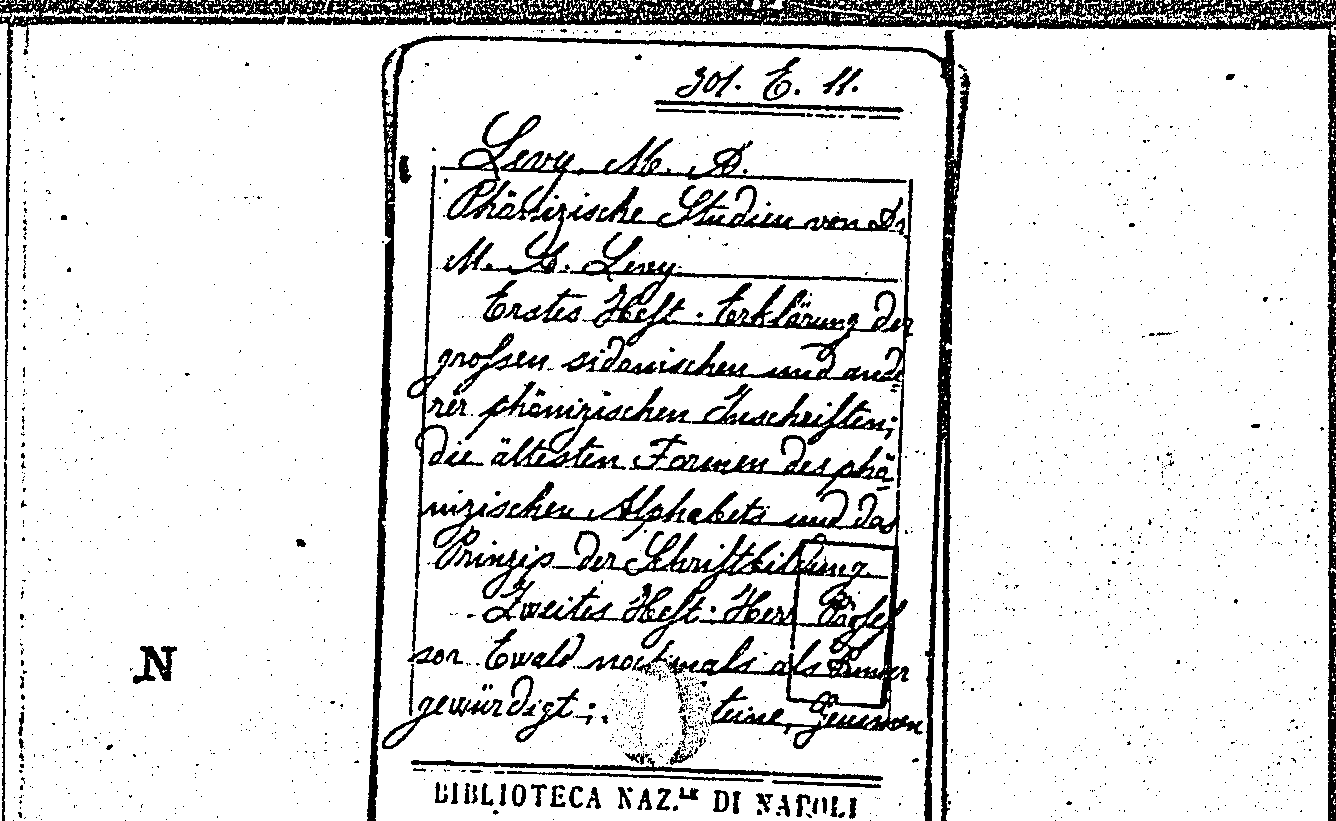 301. E. 11.
Levy, M. A.
Phönizische Studien von Dr
M. A. Levy.
Erstes Heft. Erklärung der
großen sidonischen und ande
rer phönizischen Inschriften;
die ältesten Formen des phö
nizischen Alphabets und das
Prinzip der Schriftbildung.
Zweites Heft. Herr Profes
sor Ewald nochmals als
gewürdigt; teine, Gemmen
N
BIBLIOTECA NAZ.LE DI NAPOLI